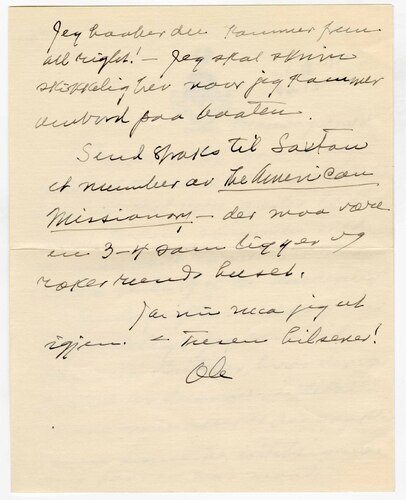 Jeg haaber du kommer frem
all right! – Jeg skal skrive
skikkelig brev naar jeg kommer
ombord paa baaten.
Send straks til Saxton
et number av The American
Missionary – der maa være
en 3-4 som ligger og
rundt huset.
Ja nu maa jeg ut
igjen. – hilsener!
Ole